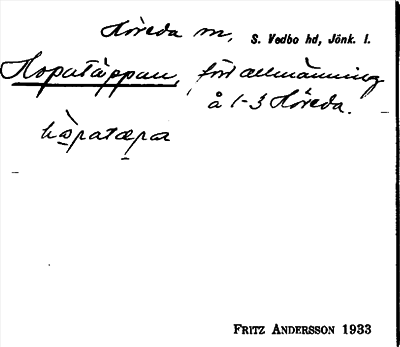 Höreda sn, S. Vedbo hd, Jönk. l.
Hopatäppan, förr allmänning
å 1-3 Höreda.
FRITZ ANDERSSON 1933